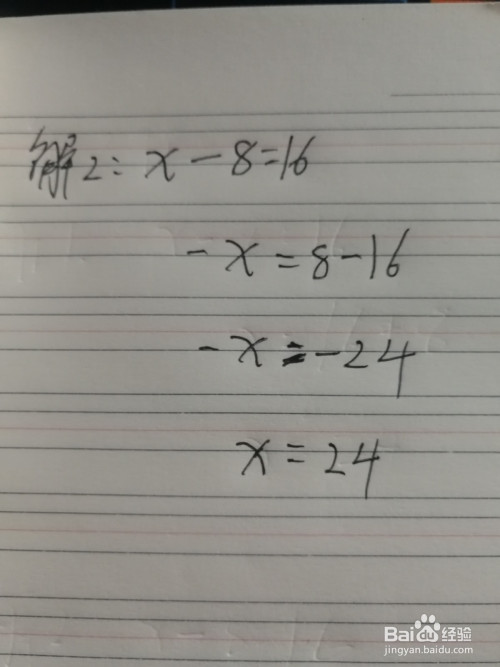 解2: x-8=16
-x=8-16
-x=-24
x=24
Baidu经验
jingyan.baidu.com